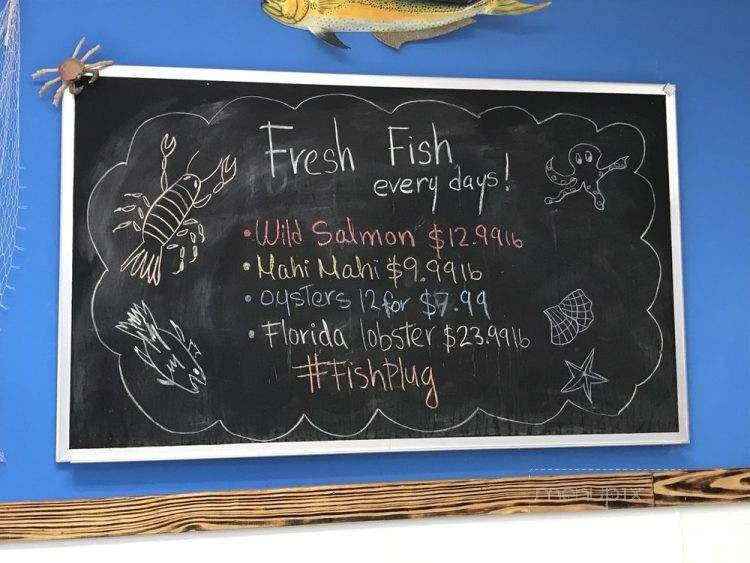 Fresh Fish
every days!
• Wild Salmon $12.99lb
• Mahi Mahi $9.99lb
• oysters 12 for $7.99
• Florida lobster $23.99lb
#FishPlug
menupix